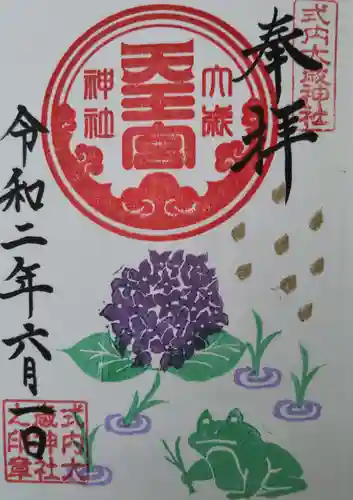 奉拝
式内大歳神社
大歳
天王宮
神社
令和二年六月一日
式内大
歳神社
之印章